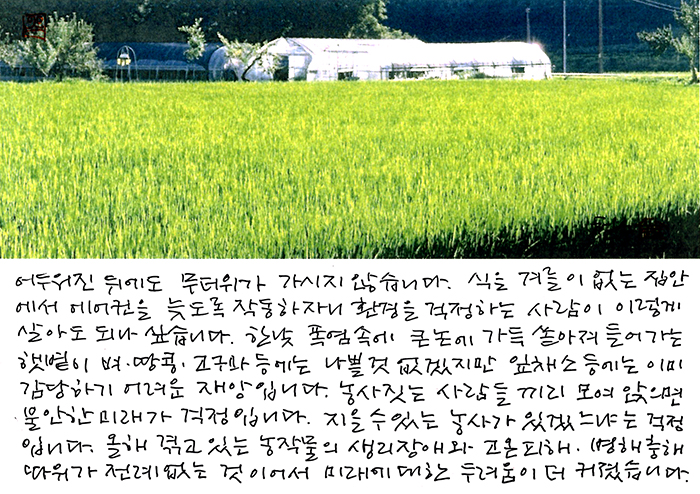 어두워진 뒤에도 무더위가 가시지 않습니다. 식을 겨를이 없는 집안
에서 에어컨을 늦도록 작동하자니 환경을 걱정하는 사람이 이렇게
살아도 되나 싶습니다. 한낮 폭염속에 큰논에 가득 쏟아져 들어가는
햇볕이 벼·땅콩·고구마 등에는 나쁠것 없겠지만 잎채소 등에는 이미
감당하기 어려운 재앙입니다. 농사짓는 사람들 끼리 모여 앉으면
불안한 미래가 걱정입니다. 지을 수 있는 농사가 있겠느냐는 걱정
입니다. 올해 겪고 있는 농작물의 생리장애와 고온피해. (병해충해
따위가 전례없는 것이어서 미래에 대한 두려움이 더 커졌습니다.